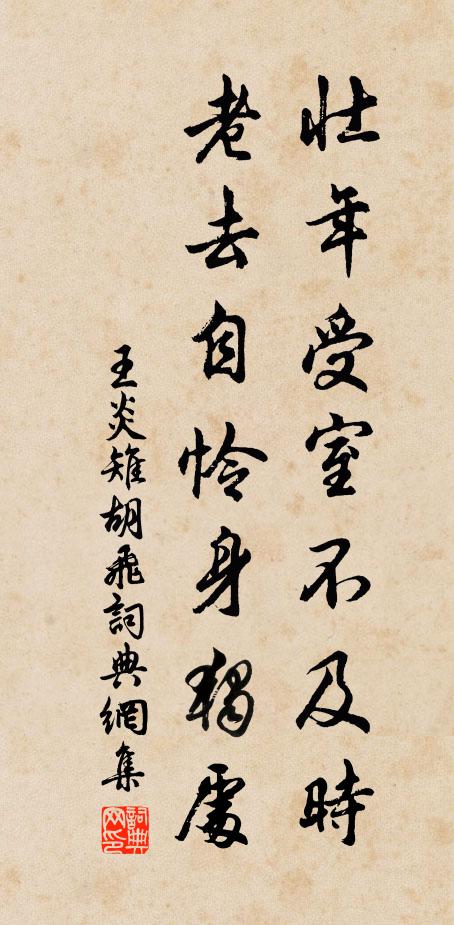 壮年受室不及時
老去自怜身獨處
王炎雉胡飛詞典網集
詞典
网印